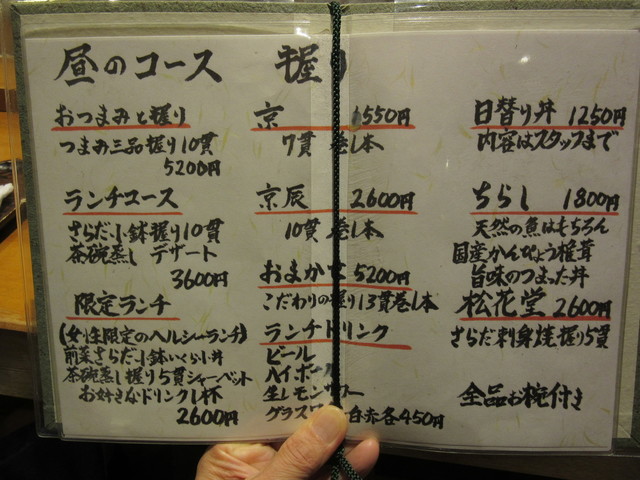 昼のコース
おつまみと握り
つまみ三品握り10貫
5200円
ランチコース
さらだ小鉢握り10貫
茶碗蒸し デザート
3600円
限定ランチ
(女性限定のヘルシーランチ)
前菜さらだ小鉢いくら小丼
茶碗蒸し握り5貫シャーベット
お好きなドリンク1杯
2600円
握り
京 1550円
7貫 巻1本
京辰 2600円
10貫 巻1本
おまかせ 5200円
こだわりの握り13貫巻1本
ランチドリンク
ビール
ハイボール
生レモンサワー
白赤各450円
日替り丼 1250円
内容はスタッフまで
ちらし 1800円
天然の魚はもちろん
国産かんぴょう椎茸
旨味のつまった丼
松花堂 2600円
さらだ刺身焼握り5貫
全品お椀付き